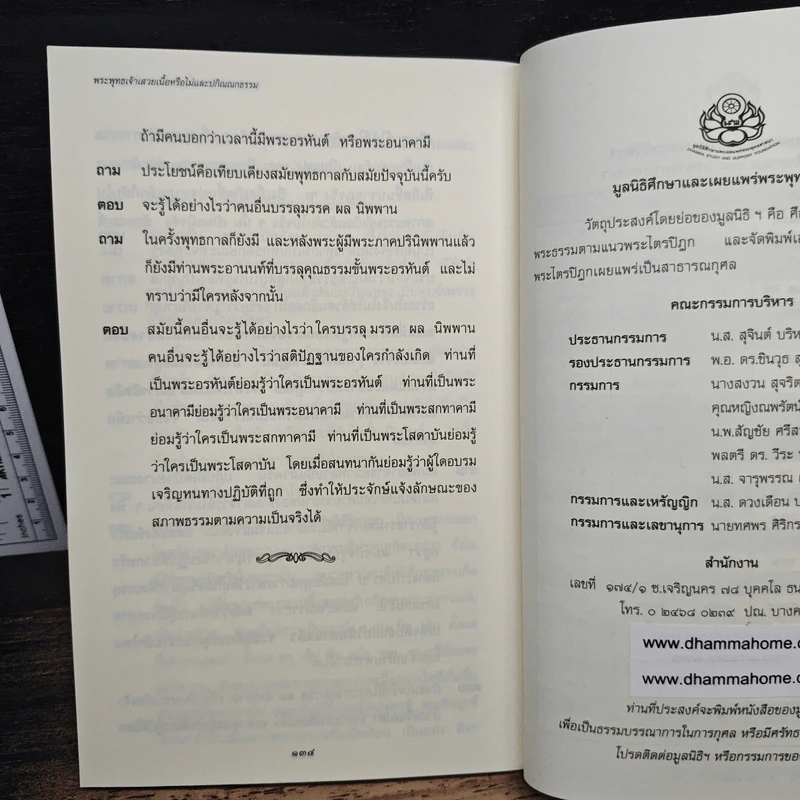 พระพุทธเจ้าเสวยเนื้อหรือไม่และปกิณณกธรรม
ถ้ามีคนบอกว่าเวลานี้มีพระอรหันต์ หรือพระอนาคามี
ถาม ประโยชน์คือเทียบเคียงสมัยพุทธกาลกับสมัยปัจจุบันนี้ครับ
ตอบ จะรู้ได้อย่างไรว่าคนอื่นบรรลุมรรค ผล นิพพาน
ถาม ในครั้งพุทธกาลก็ยังมี และหลังพระผู้มีพระภาคปรินิพพานแล้ว
ก็ยังมีท่านพระอานนท์ที่บรรลุคุณธรรมขั้นพระอรหันต์ และไม่
ทราบว่ามีใครหลังจากนั้น
ตอบ สมัยนี้คนอื่นจะรู้ได้อย่างไรว่า ใครบรรลุ มรรค ผล นิพพาน
คนอื่นจะรู้ได้อย่างไรว่าสติปัฏฐานของใครกำลังเกิด ท่านที่
เป็นพระอรหันต์ย่อมรู้ว่าใครเป็นพระอรหันต์ ท่านที่เป็นพระ
อนาคามีย่อมรู้ว่าใครเป็นพระอนาคามี ท่านที่เป็นพระสกทาคามี
ย่อมรู้ว่าใครเป็นพระสกทาคามี ท่านที่เป็นพระโสดาบันย่อมรู้
ว่าใครเป็นพระโสดาบัน โดยเมื่อสนทนากันย่อมรู้ว่าผู้ใดอบรม
เจริญหนทางปฏิบัติที่ถูก ซึ่งทำให้ประจักษ์แจ้งลักษณะของ
สภาพธรรมตามความเป็นจริงได้
๑๓๔
มูลนิธิศึกษาและเผยแพร่พระพุทธศาสนา
DHAMMA STUDY AND SUPPORT FOUNDATION
มูลนิธิศึกษาและเผยแพร่พระพุท
วัตถุประสงค์โดยย่อของมูลนิธิ ฯ คือ
พระธรรมตามแนวพระไตรปิฎก และจัดพิมพ์
พระไตรปิฎกเผยแพร่เป็นสาธารณกุศล
คณะกรรมการบริหาร
ประธานกรรมการ น.ส. สุจินต์ บริห
รองประธานกรรมการ พ.อ. ดร.ชินวุธ
กรรมการ นางสงวน สุจริต
คุณหญิงณพรัตน์
น.พ.สัญชัย ศรีส
พลตรี ดร. วีระ
น.ส. จารุพรรณ
กรรมการและเหรัญญิก น.ส. ดวงเดือน
กรรมการและเลขานุการ นายทศพร ศิริกร
สำนักงาน
เลขที่ ๑๗๔/๑ ซ.เจริญนคร ๗๘ บุคคโล ธน
โทร. ๐ ๒๔๖๘ ๐๒๓๙ ปณ. บางค
www.dhammahome.c
www.dhammahome.
ท่านที่ประสงค์จะพิมพ์หนังสือของมู
เพื่อเป็นธรรมบรรณาการในการกุศล หรือมีศรัทธ
โปรดติดต่อมูลนิธิฯ หรือกรรมการของ